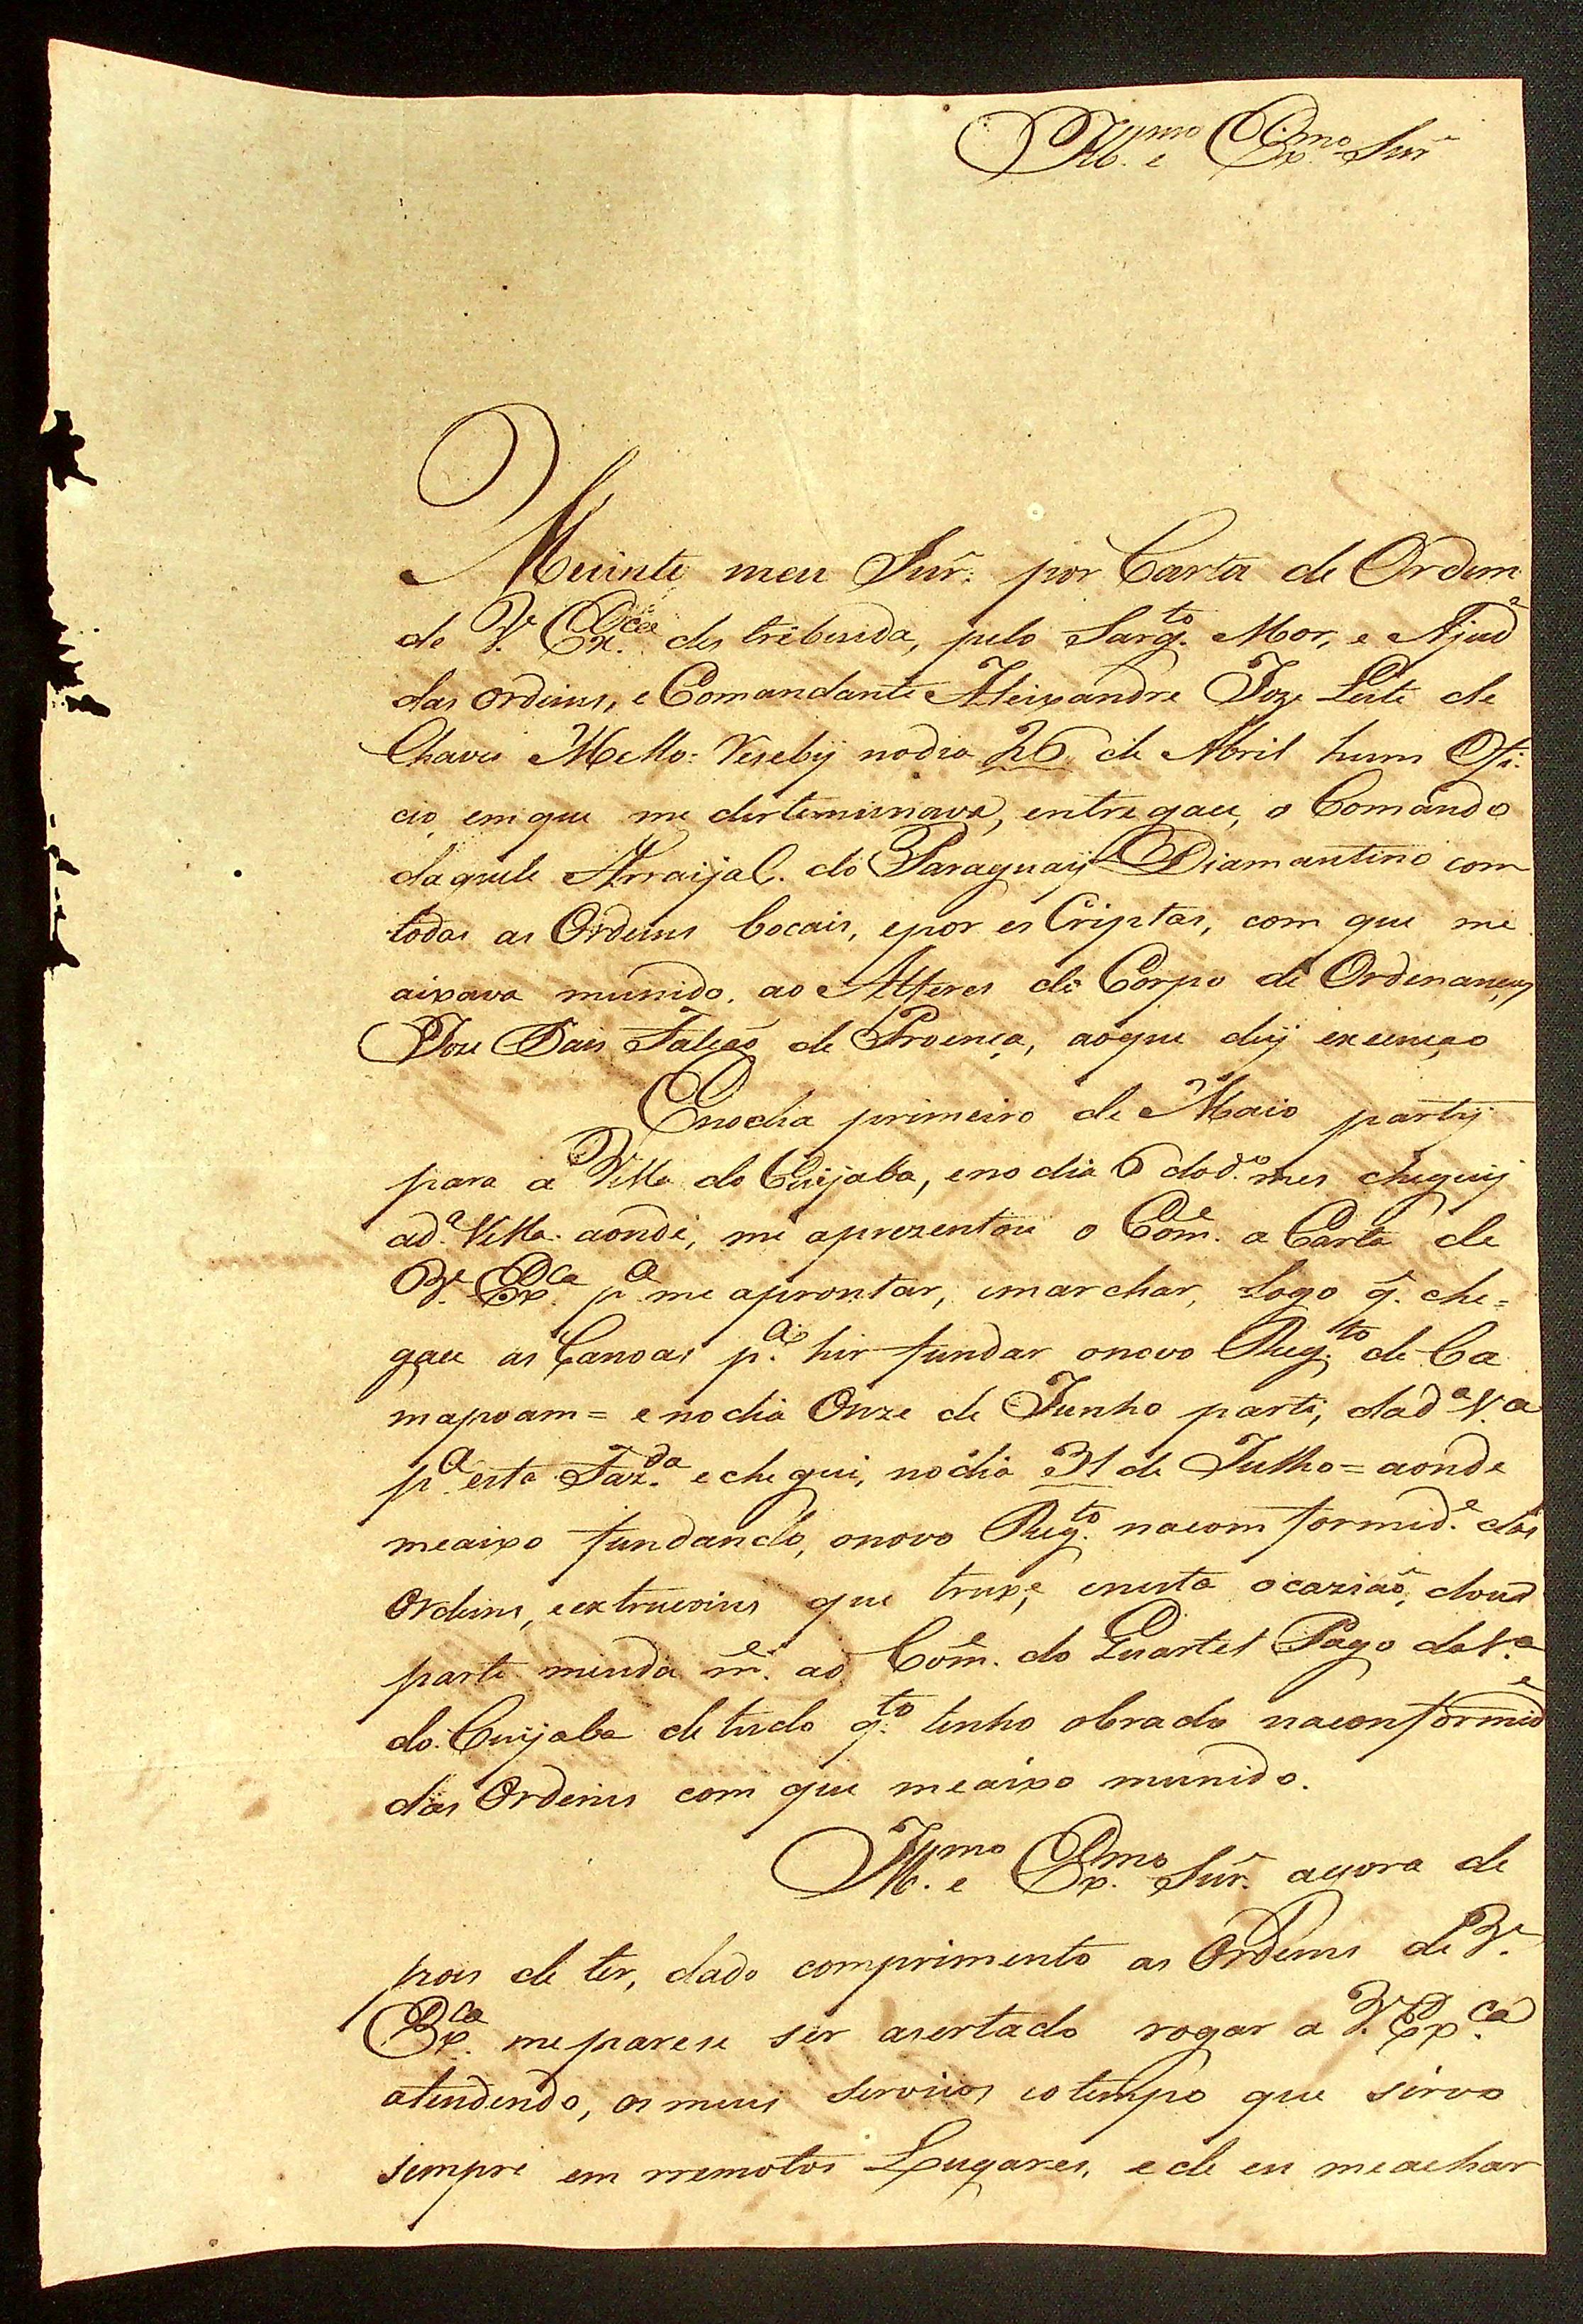 Ill.mo e Ex.mo Snr
meu Snr. por Carta de Ordem
de V. Ex.cia destribuida, pelo Sarg.to Mor, e Ajud.e
das ordens, e Comandante Aleixandre Joze Leite de
Chaves Mello= Resebÿ nodia 26 de Abril hum Ofi-
cio emque me dertiminava, entregace, o Comando
daquele Arraijal. do Paraguaÿ Diamantino com
todas as Ordens bocais, epor esCriptas, com que me
aixava munido, ao Alferes do Corpo de Ordenanças
Joze Pais Falcaõ de Proença, aoque deÿ execuçao
Enodia primeiro de Maio partÿ
para a Villa do Cuijaba, eno dia 6 dod.o mes chegueÿ
ad.a Villa. aonde, me aprezentou o Com.e a Carta de
V. Ex.ca p.a me aprontar, emarchar, Logo q. che=
gace as Canoas p.a hir fundar onovo Reg.to de Ca
mapoam= enodia Onze de Junho parti, dad.a V.a
p.a esta Faz.da echeguei, nodia 31 de Julho= aonde
meaixo fundando, onovo Reg.to naconformid.e das
Ordens, eextrucoins que truxe, enesta ocaziaõ, dou
parte meuda m.e ao Com.e do Quartel Pago da V.a
do Cuijaba detudo q.to tenho obrado naconformid.e
das Ordens com que meaixo munido.
Ill.mo e Ex.mo Snr. agora de
pois de ter, dado comprimento as Ordens de V.
Ex.ca meparese ser asertado rogar a V. Ex.ca
atendendo, os meus servicos eotempo que sirvo
sempre em rremotos Lugares, ede eu meachar